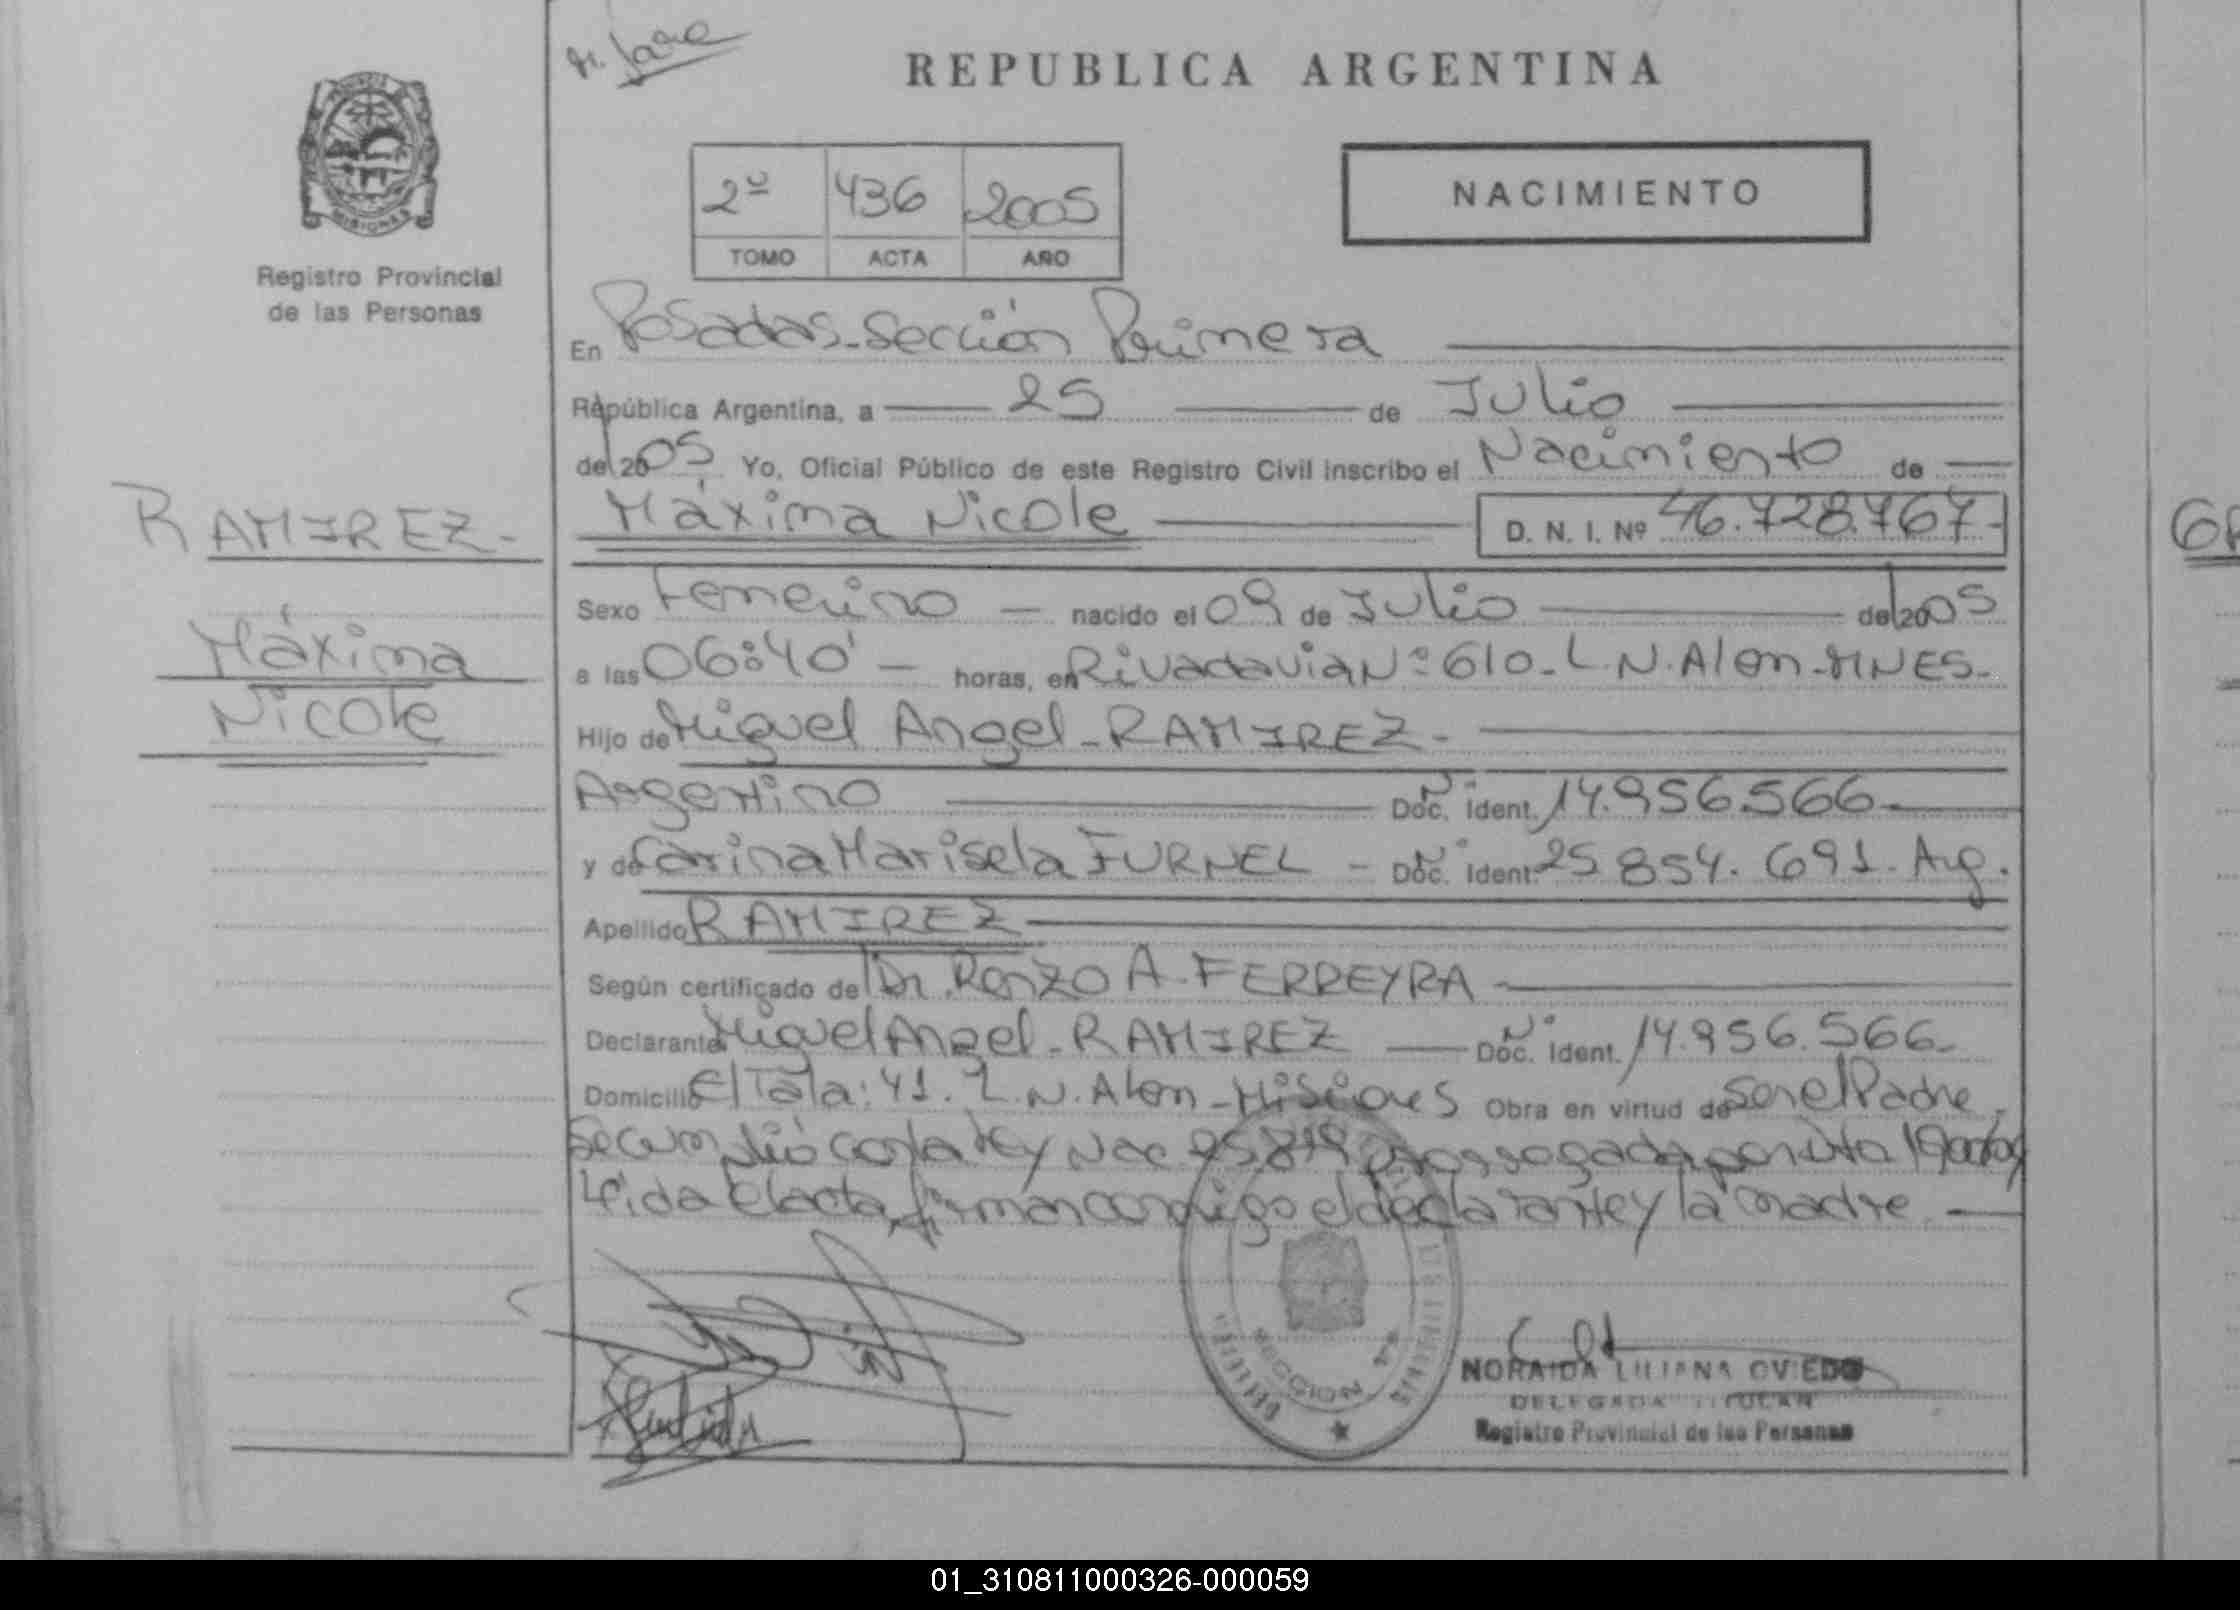 REPUBLICA ARGENTINA
MISIONES
Registro Provincial
de las Personas
2º 436 2005
TOMO ACTA AÑO
NACIMIENTO
En Posadas-Sección Primera
República Argentina, a 25 de Julio
del 2005 Yo, Oficial Público de este Registro Civil inscribo el Nacimiento de
Máxima Nicole D. N. I. Nº 46.728.767-
RAMIREZ-
Máxima
Nicole
Sexo Femenino nacido el 09 de Julio del 2005
a las 06:40' horas, en Rivadavia Nº 610-L.N.Alem-MNES-
Hijo de Miguel Angel-RAMIREZ-
Argentino Doc. Ident. 14.956.566
y de Carina Marisela FURNEL - Doc. Ident. 25.854.691-Arg.
Apellido RAMIREZ
Según certificado de Dr. Renzo A. FERREYRA
Declarante Miguel Angel-RAMIREZ Doc. Ident. 14.956.566-
Domicilio El Tala: 41. L.N.Alem-Misiones Obra en virtud de ser el Padre.
Se cumplió con la ley Nac 25.819 prorrogada por
Leída el acta, firman conmigo el declarante y la madre.
SECCION 1a
NORAIDA LILIANA OVIEDO
DELEGADA TITULAR
Registro Provincial de las Personas
01_310811000326-000059